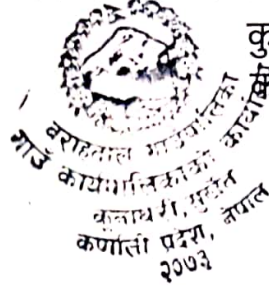 कु
बराहताल गाउँपालिका
गाउँ कार्यपालिकाको कार्यालय
कुनाथरी, सुर्खेत
कर्णाली प्रदेश, नेपाल
२०७३